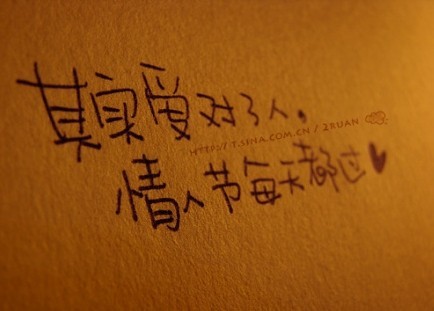 其实爱对了人。
HTTP://T.SINA.COM.CN/2KUAN
情人节每天都过♥